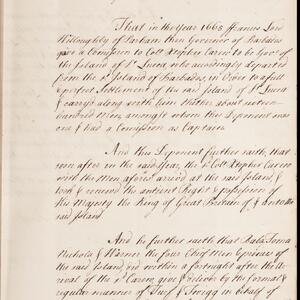 That in the Year 1663 ffrancis Lord
Willoughby of Parham then Governor of Barbados
gave a Comission to Collo. Xtopher Carew to be Govr. of
the Island of St. Lucea who accordingly departed
from the sd. Island of Barbados, in Order to a full
& perfect Settlement of the said Island of St. Lucea
& carryd along with him thither about
hundred Men, among whom this Deponent was
one & had a Comission as Captain
And this Deponent further saith that
soon after in the said Year, the sd. Collo. Xtopher Carew
with the Men aforesd. arrived at the said Island, &
took & renewed the antient Right & possession of
His Majesty the King of Great Britain of &
said Island.
And he further saith that
Nichola & Warner the four Chief Men
the said Island, did within a fortnight after the
rival of the sd. Carew, give & deliver by the formal &
regular manner of Turf & Twigg in behalf of